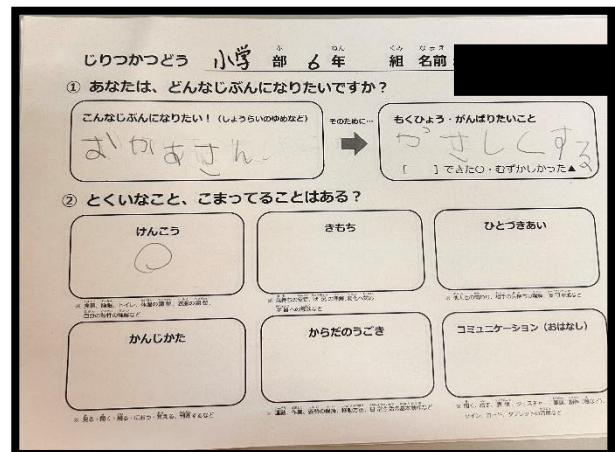 じりつかつどう 小学 部 6 年 組 名前
① あなたは、どんなじぶんになりたいですか？
こんなじぶんになりたい！（しょうらいのゆめなど）
おかあさん
そのために…
もくひょう・がんばりたいこと
やさしくする
［ ］できた○・むずかしかった▲
② とくいなこと、こまってることはある？
けんこう
○
きもち
ひとづきあい
かんじかた
からだのうごき
コミュニケーション（おはなし）
※ 見る・聞く・触る・におう・覚える、判断するなど